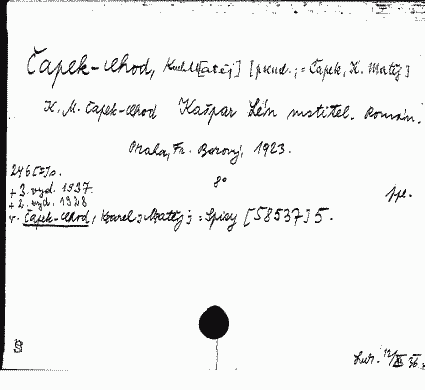 Čapek-Chod, Karel M[atěj] [pseud.; = Čapek, K. Matěj]
K. M. Čapek-Chod Kašpar Lén mstitel. Román.
Praha, Fr. Borový, 1923.
8°
+ 3. vyd. 1937.
ppl.
+ 2. vyd. 1928
v. Čapek-Chod, Karel Matěj: Spisy [58537] 5.